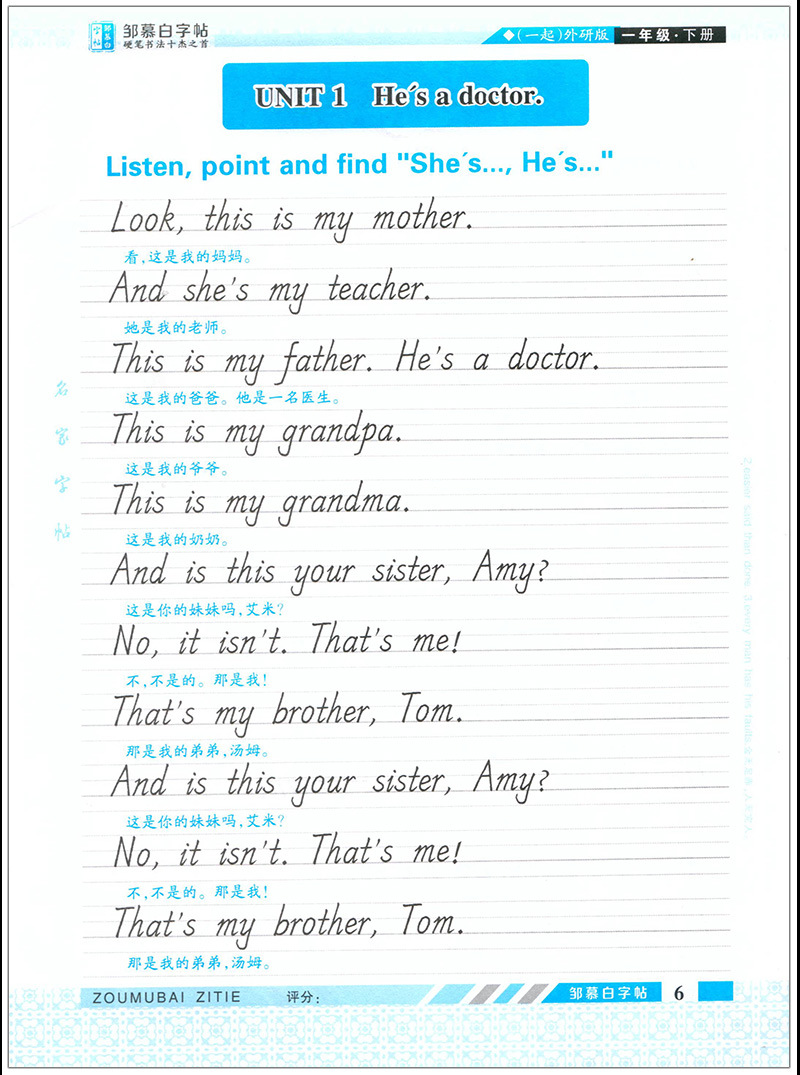 邹慕白字帖
硬笔书法十杰之首
◆(一起)外研版 一年级·下册
UNIT 1 He's a doctor.
Listen, point and find "She's..., He's..."
Look, this is my mother.
看,这是我的妈妈。
And she's my teacher.
她是我的老师。
This is my father. He's a doctor.
这是我的爸爸。他是一名医生。
This is my grandpa.
这是我的爷爷。
This is my grandma.
这是我的奶奶。
And is this your sister, Amy?
这是你的妹妹吗,艾米?
No, it isn't. That's me!
不,不是的。那是我!
That's my brother, Tom.
那是我的弟弟,汤姆。
And is this your sister, Amy?
这是你的妹妹吗,艾米?
No, it isn't. That's me!
不,不是的。那是我!
That's my brother, Tom.
那是我的弟弟,汤姆。
名家字帖
2.easier said than done. 3.every man has his faults.
ZOUMUBAI ZITIE 评分:
邹慕白字帖 6